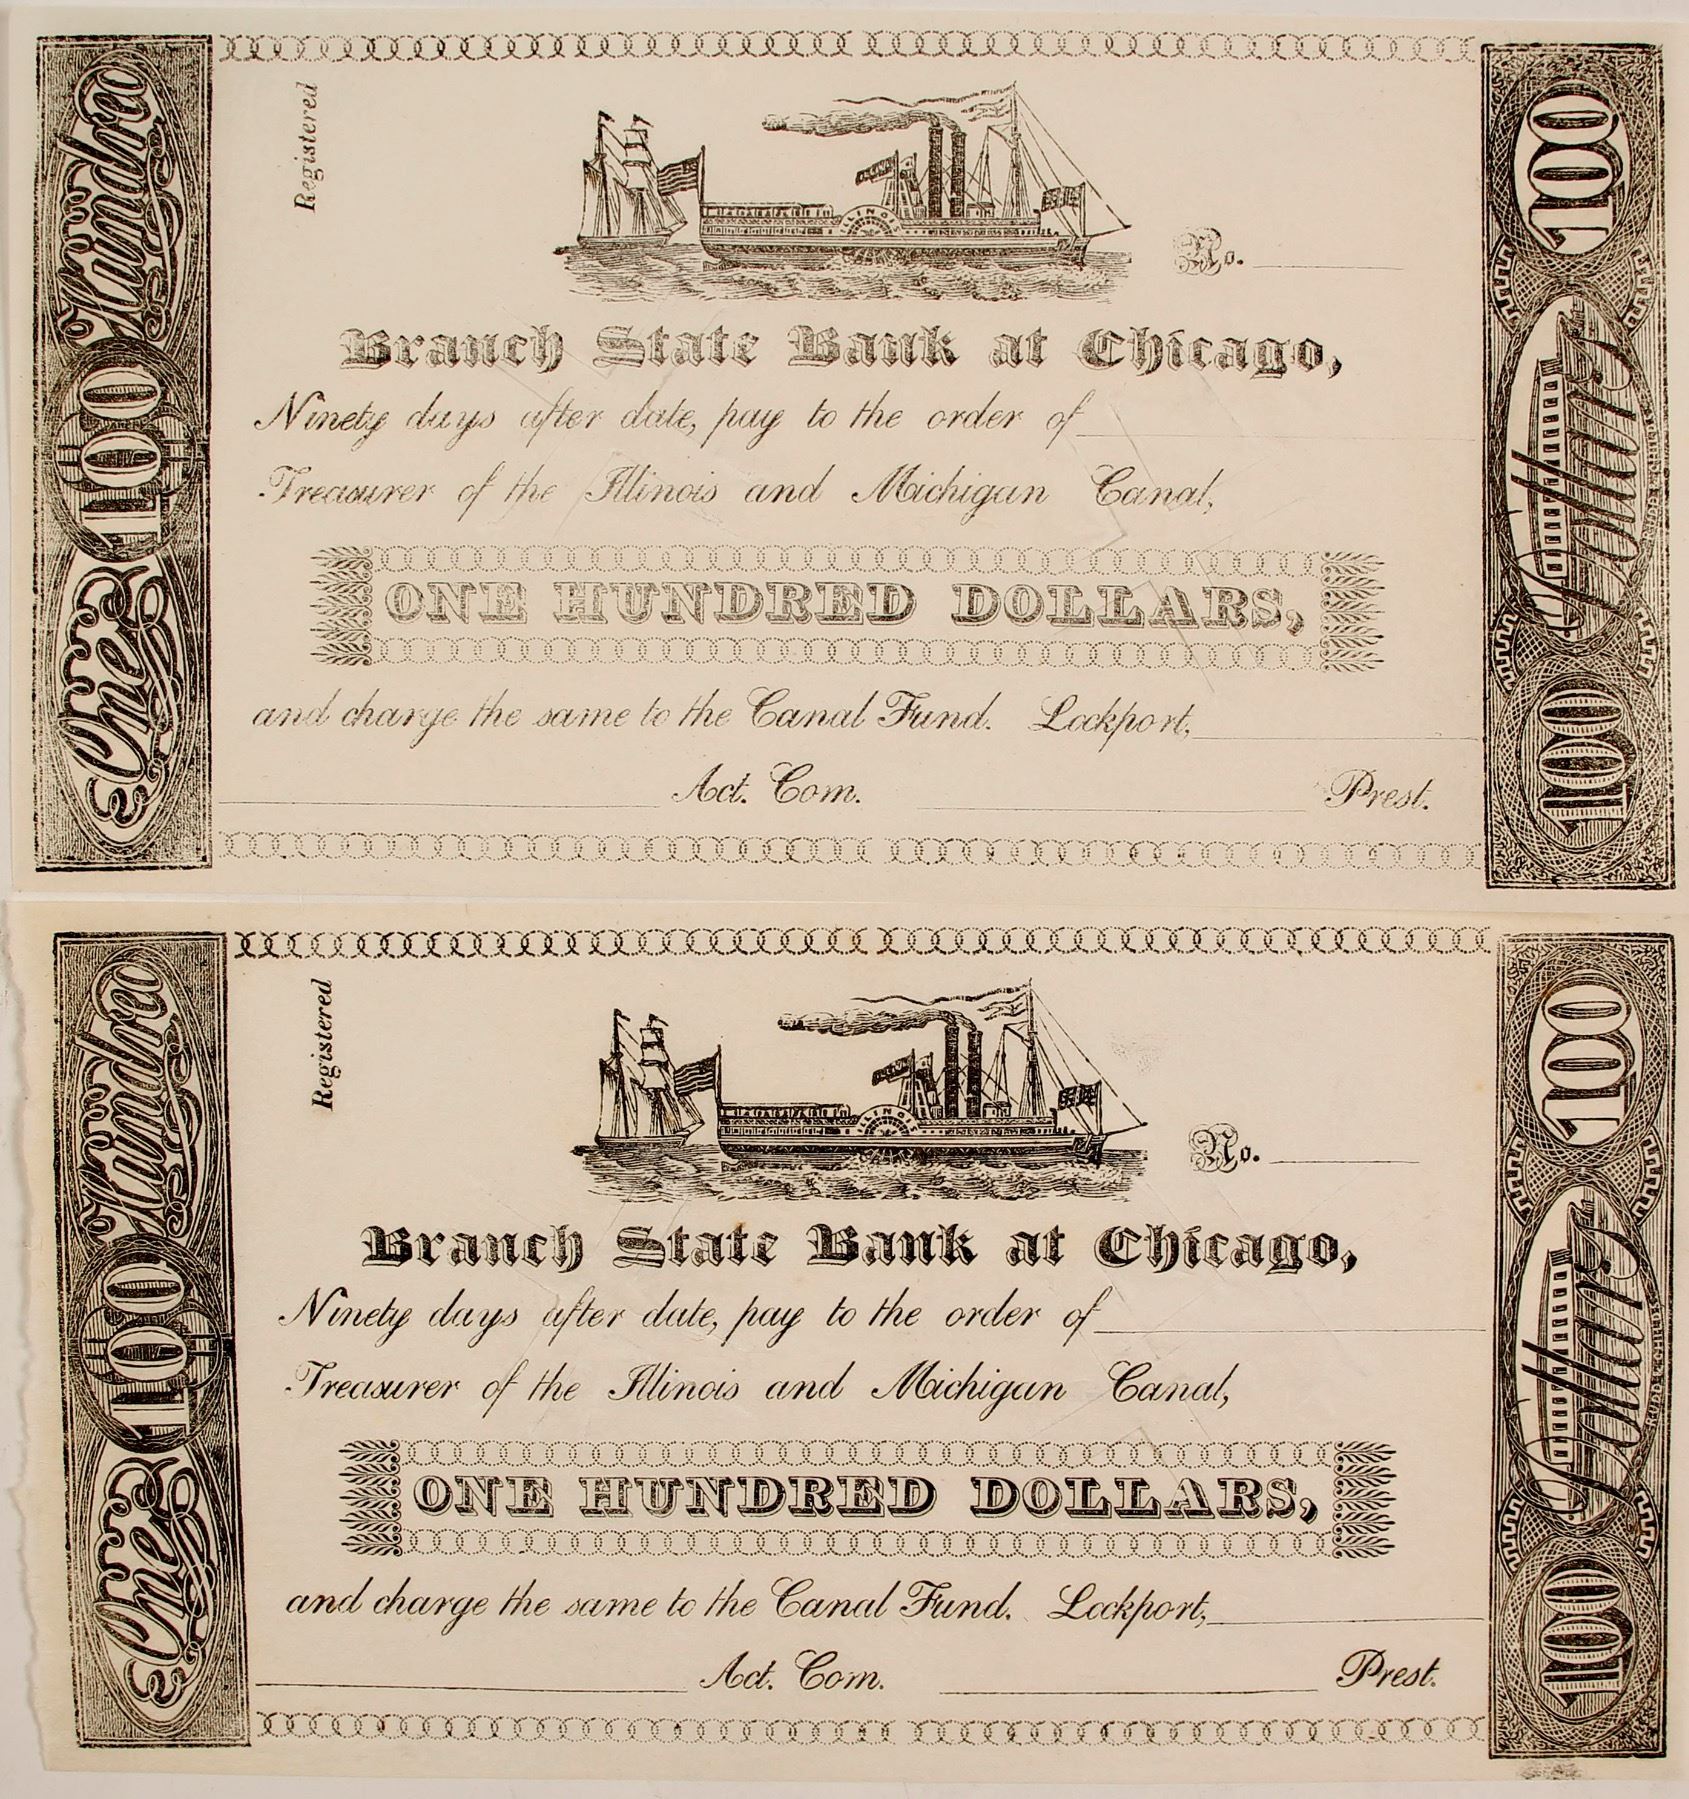 One 100 Hundred
Registered
ILLINOIS
No.
100 Dollars 100
Branch State Bank at Chicago,
Ninety days after date, pay to the order of
Treasurer of the Illinois and Michigan Canal,
ONE HUNDRED DOLLARS,
and charge the same to the Canal Fund. Lockport,
Act. Com. Prest.
One 100 Hundred
Registered
ILLINOIS
No.
100 Dollars 100
Branch State Bank at Chicago,
Ninety days after date, pay to the order of
Treasurer of the Illinois and Michigan Canal,
ONE HUNDRED DOLLARS,
and charge the same to the Canal Fund. Lockport,
Act. Com. Prest.